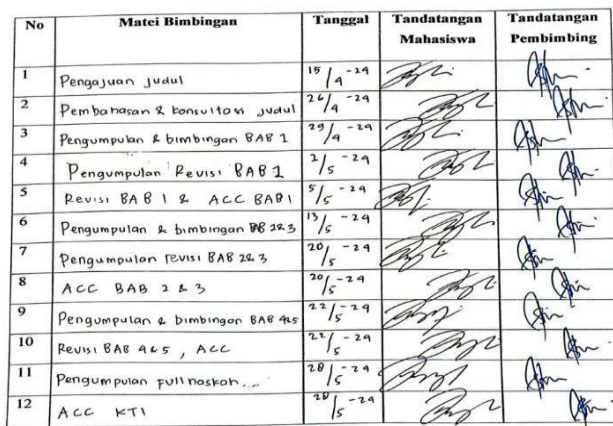 No Matei Bimbingan Tanggal Tandatangan Mahasiswa Tandatangan Pembimbing
1 Pengajuan Judul 15/4-24
2 Pembahasan & konsultasi judul 26/4-24
3 Pengumpulan & bimbingan BAB 1 29/4-24
4 Pengumpulan Revisi BAB 1 2/5-24
5 Revisi BAB 1 & ACC BAB 1 5/5-24
6 Pengumpulan & bimbingan BAB 2&3 13/5-24
7 Pengumpulan revisi BAB 2&3 20/5-24
8 ACC BAB 2 & 3 20/5-24
9 Pengumpulan & bimbingan BAB 4&5 22/5-24
10 Revisi BAB 4&5, ACC 22/5-24
11 Pengumpulan full naskah.... 28/5-24
12 ACC KTI 28/5-24